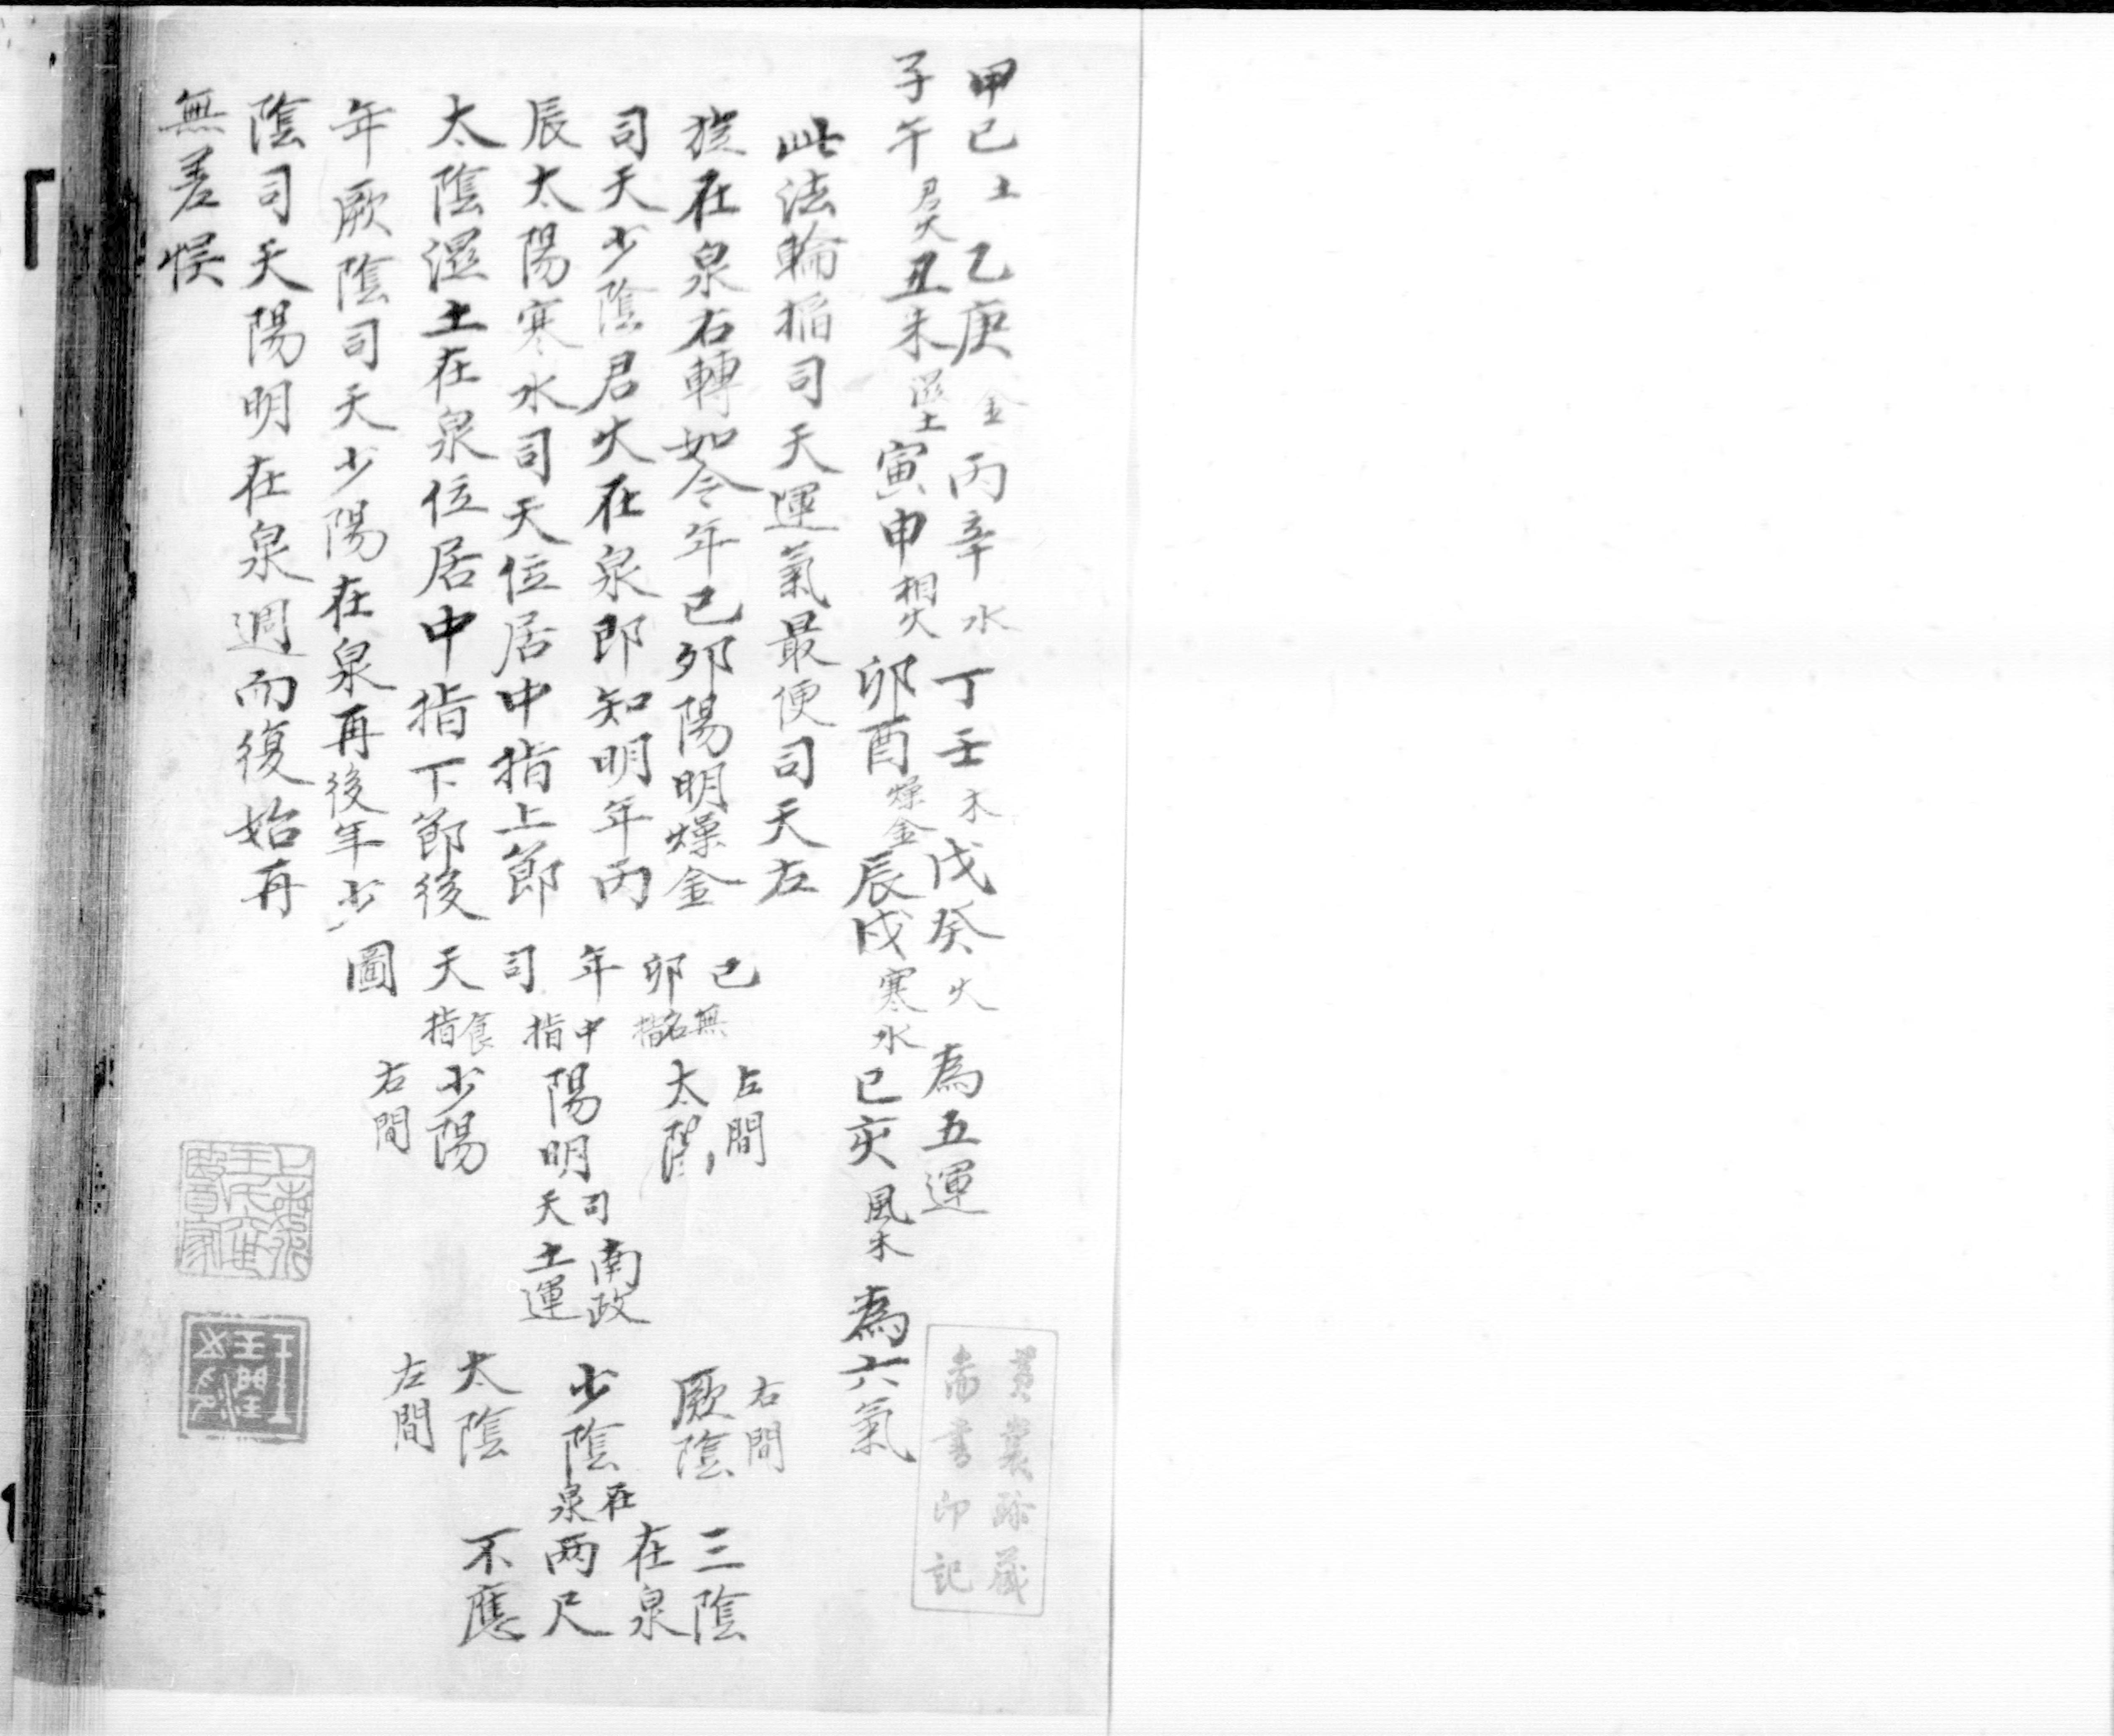 甲己土乙庚金丙辛水丁壬木戊癸火為五運
子午君火丑未濕土寅申相火卯酉燥金辰戌寒水巳亥風木為六氣
此法輪掐司天運氣最便司天左
旋在泉右轉如今年己卯陽明燥金
司天少陰君火在泉即知明年丙
辰太陽寒水司天位居中指上節
太陰濕土在泉位居中指下節後
年厥陰司天少陽在泉再後年少
陰司天陽明在泉週而復始再
無差悞
己卯年司天圖
無名指
太陽
左間
中指
陽明
司天
南政
土運
食指
少陽
右間
右間
厥陰
少陰
在泉
太陰
左間
三陰
在泉
兩尺
不應
印記